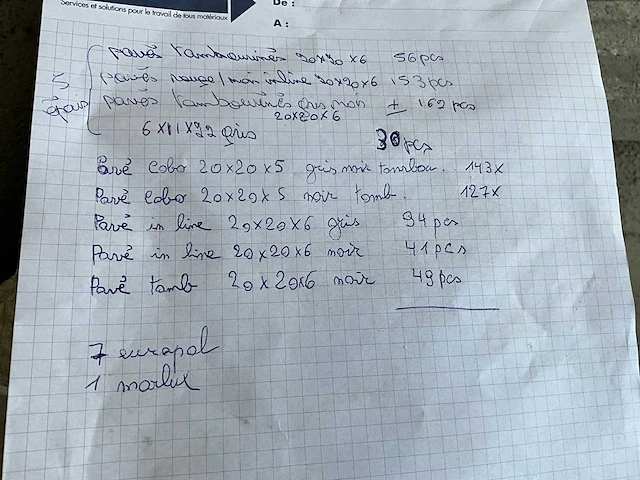 Services et solutions pour le travail de tous matériaux
De :
A :
pavés tambourinés 20x20 x 6 56 pcs
pavés rouge / noir inline 20x20x6 153 pcs
pavés tambourinés gris noir ± 162 pcs
20x20x6
6 x 11 x 22 gris 30 pcs
Pavé Cobo 20x20x5 gris noir tambou. 143x
Pavé Cobo 20x20x5 noir tamb. 127x
Pavé in line 20x20x6 gris 94 pcs
Pavé in line 20x20x6 noir 41 pcs
Pavé tamb 20x20x6 noir 49 pcs
7 europal
1 marlux